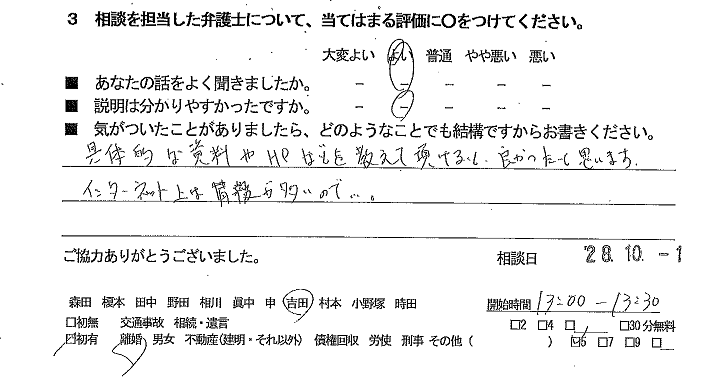 3 相談を担当した弁護士について、当てはまる評価に〇をつけてください。
大変よい よい 普通 やや悪い 悪い
■ あなたの話をよく聞きましたか。 － － － － －
■ 説明は分かりやすかったですか。 － － － － －
■ 気がついたことがありましたら、どのようなことでも結構ですからお書きください。
具体的な資料やHPなどを教えて頂けると、良かったと思います。
インターネット上は情報が多いので…。
ご協力ありがとうございました。 相談日 '28.10.-1
森田 榎本 田中 野田 相川 眞中 申 吉田 村本 小野塚 時田 開始時間 13:00－13:30
□初無 交通事故 相続・遺言 □2 □4 □ □30分無料
□初有 離婚 男女 不動産(建明・それ以外) 債権回収 労使 刑事 その他( ) □5 □7 □9 □